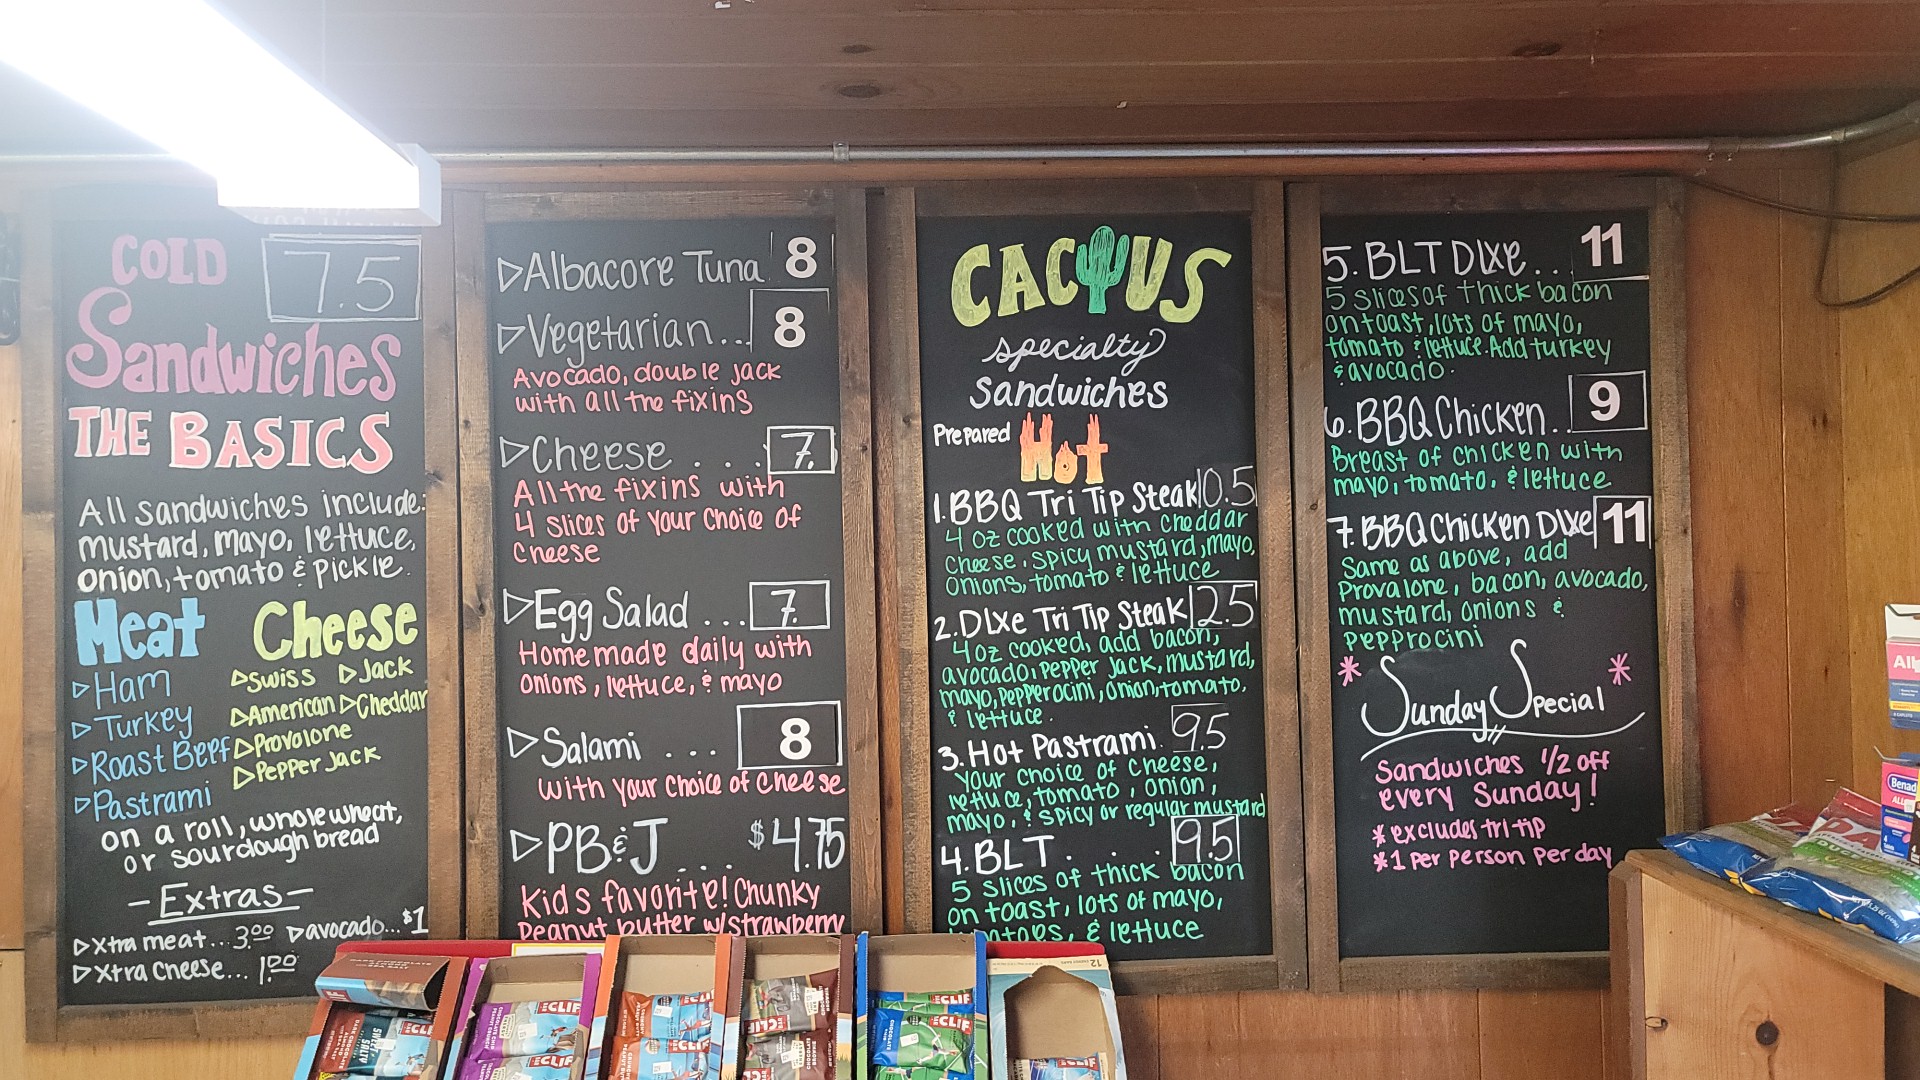 COLD 7.5
Sandwiches
THE BASICS
All sandwiches include:
mustard, mayo, lettuce,
onion, tomato & pickle.
Meat Cheese
▷Ham
▷Turkey
▷Roast Beef
▷Pastrami
▷Swiss ▷Jack
▷American ▷Cheddar
▷Provolone
▷Pepper Jack
on a roll, whole wheat,
or sourdough bread
- Extras -
▷Xtra meat... 3.00 ▷avocado...$1
▷Xtra cheese... 1.00
▷Albacore Tuna 8
▷Vegetarian... 8
Avocado, double jack
with all the fixins
▷Cheese . . . 7.
All the fixins with
4 slices of your choice of
cheese
▷Egg Salad ... 7.
Homemade daily with
onions, lettuce, & mayo
▷Salami ... 8
with your choice of cheese
▷PB&J ... $4.75
Kids favorite! Chunky
Peanut butter w/strawberry
CACTUS
specialty
Sandwiches
Prepared Hot
1. BBQ Tri Tip Steak 10.5
4 oz cooked with cheddar
cheese, spicy mustard, mayo,
onions, tomato & lettuce
2. Dlxe Tri Tip Steak 12.5
4oz cooked, add bacon,
avocado, pepper jack, mustard,
mayo, pepperocini, onion, tomato,
& lettuce.
3. Hot Pastrami. 9.5
your choice of cheese,
lettuce, tomato, onion,
mayo, & spicy or regular mustard
4. BLT. . . . 9.5
5 slices of thick bacon
on toast, lots of mayo,
& lettuce
5. BLT Dlxe... 11
5 slices of thick bacon
on toast, lots of mayo,
tomato & lettuce. Add turkey
& avocado.
6. BBQ Chicken.. 9
Breast of chicken with
mayo, tomato, & lettuce
7. BBQ Chicken Dlxe 11
Same as above, add
Provalone, bacon, avocado,
mustard, onions &
pepprocini
* Sunday Special *
Sandwiches 1/2 off
every Sunday!
* excludes tri tip
* 1 per person per day
CLIF
CLIF
CLIF
CLIF
CLIF
CLIF
CLIF